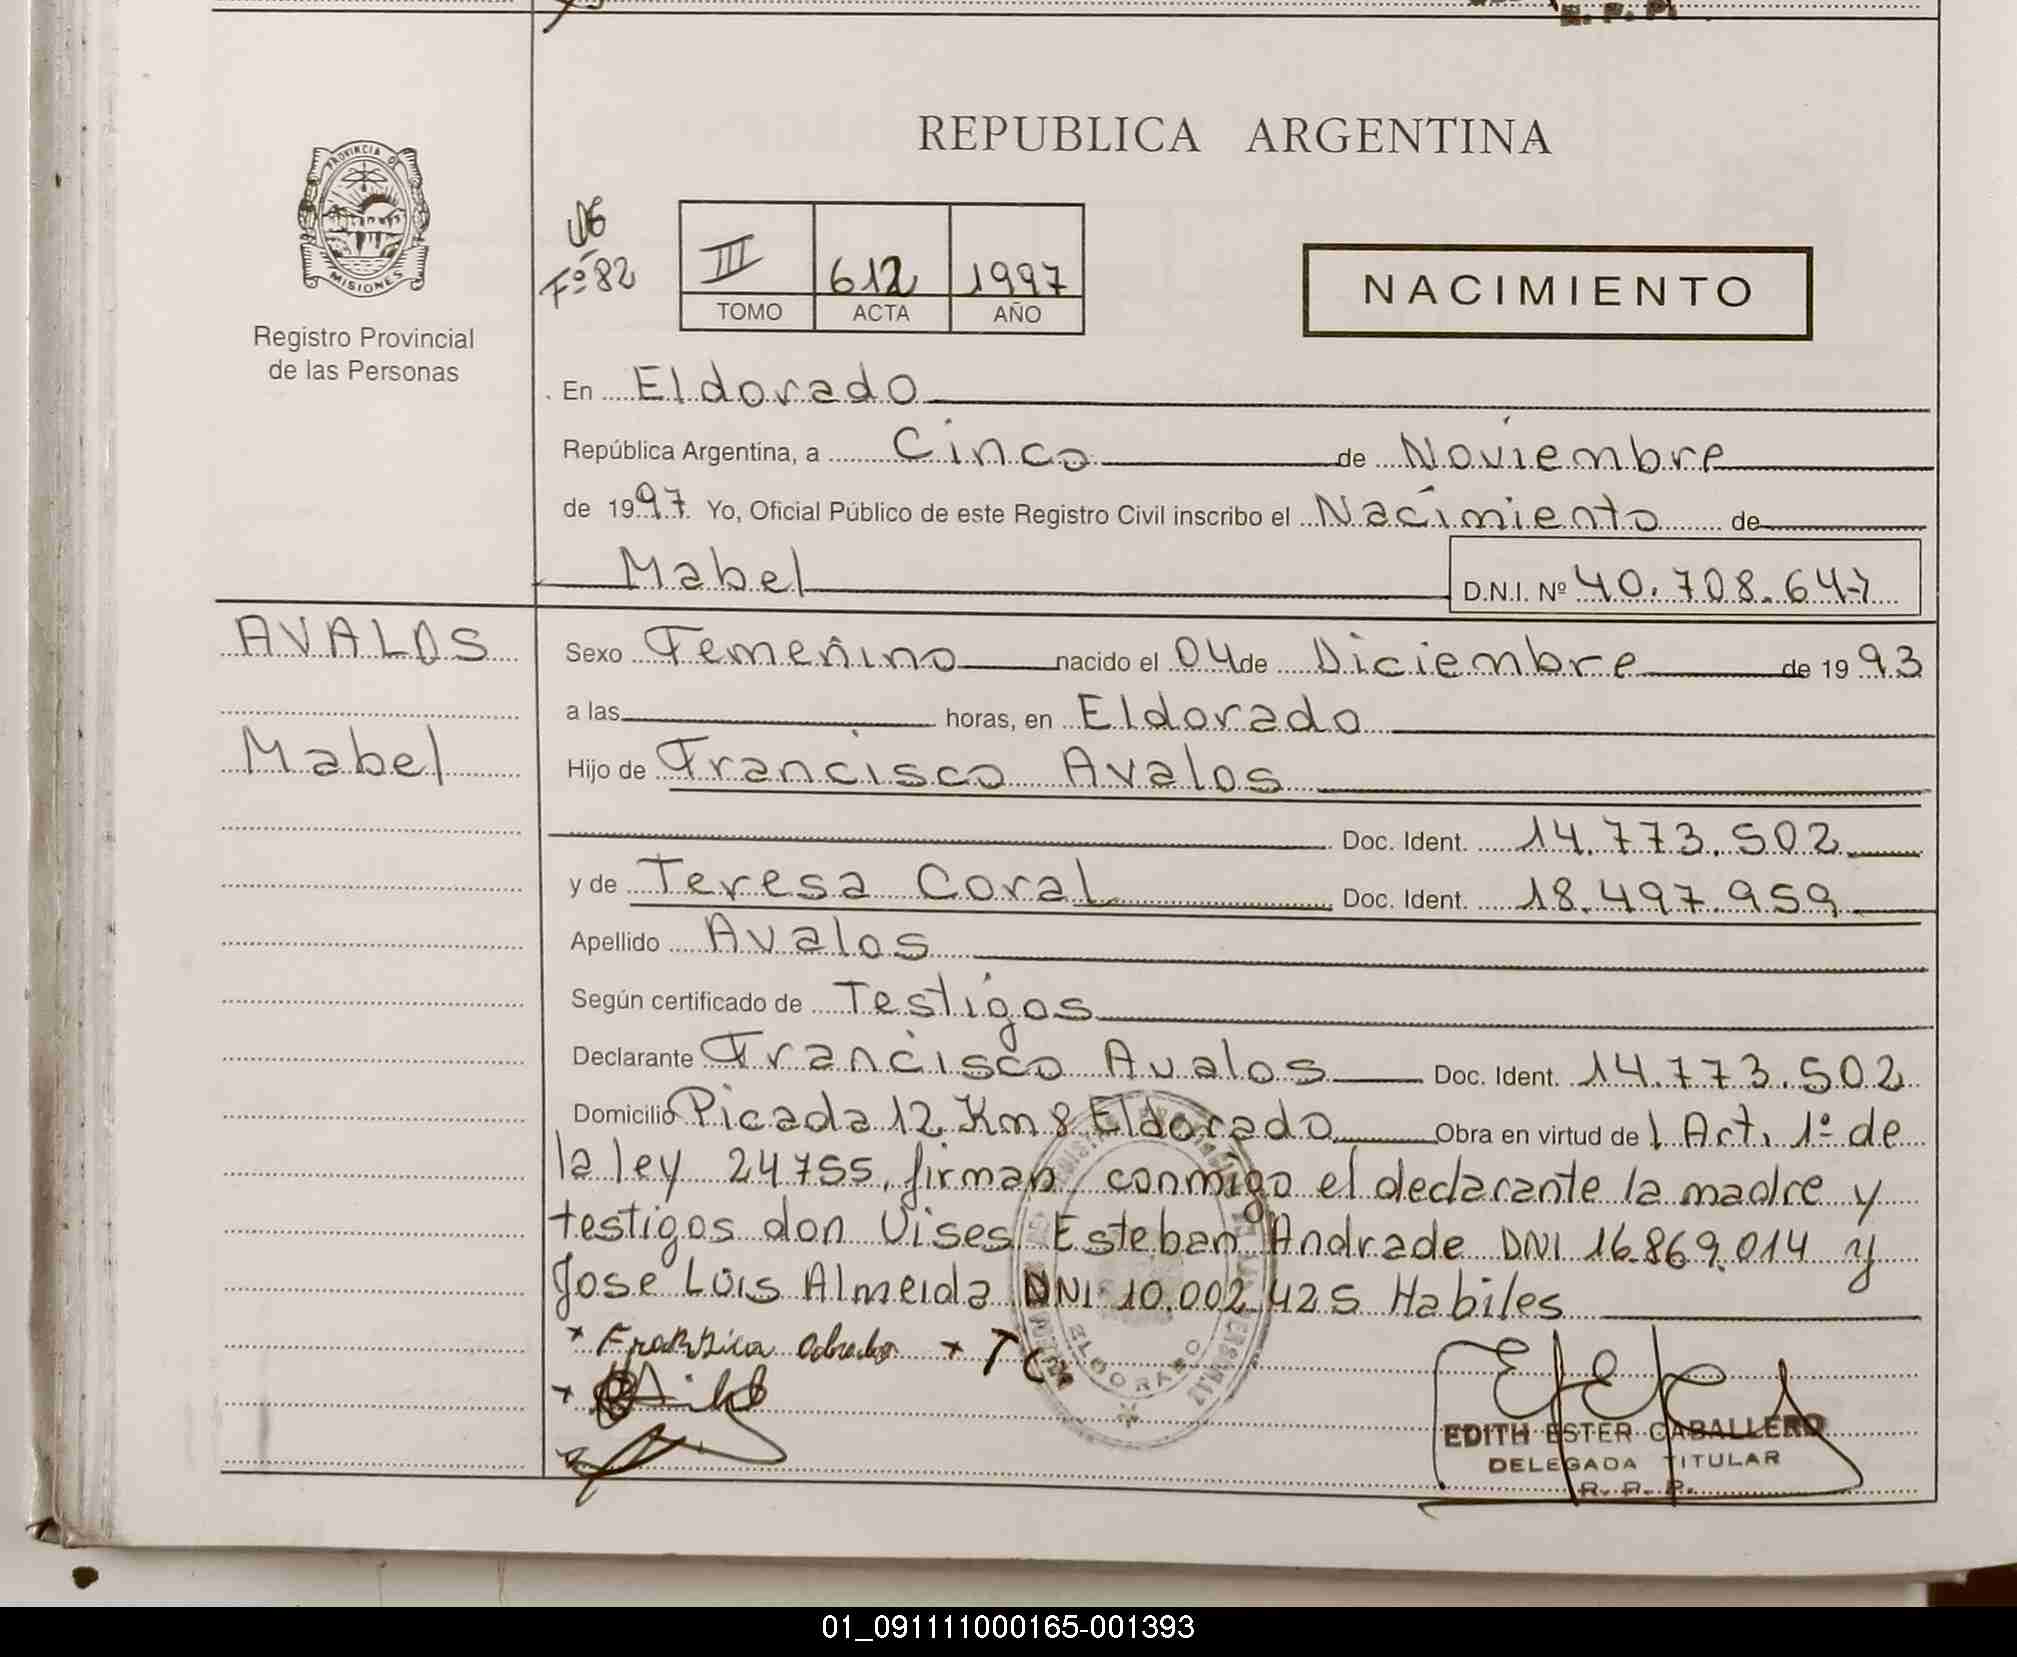 REPUBLICA ARGENTINA
PROVINCIA DE
MISIONES
Registro Provincial
de las Personas
Fº 82
III 612 1997
TOMO ACTA AÑO
NACIMIENTO
En Eldorado
República Argentina, a Cinco de Noviembre
de 1997 Yo, Oficial Público de este Registro Civil inscribo el Nacimiento de
Mabel D.N.I. Nº 40.708.647
AVALOS
Mabel
Sexo Femenino nacido el 04 de Diciembre de 1993
a las horas, en Eldorado
Hijo de Francisco Avalos
Doc. Ident. 14.773.502
y de Teresa Coral Doc. Ident. 18.497.959
Apellido Avalos
Según certificado de Testigos
Declarante Francisco Avalos Doc. Ident. 14.773.502
Domicilio Picada 12 Km 8 Eldorado Obra en virtud del Art. 1º de
la ley 24755, firman conmigo el declarante la madre y
testigos don Uises Esteban Andrade DNI 16.869.014 y
Jose Luis Almeida DNI 10.002.425 Habiles
ELDORADO
EDITH ESTER CABALLERO
DELEGADA TITULAR
R. P. P.
01_091111000165-001393